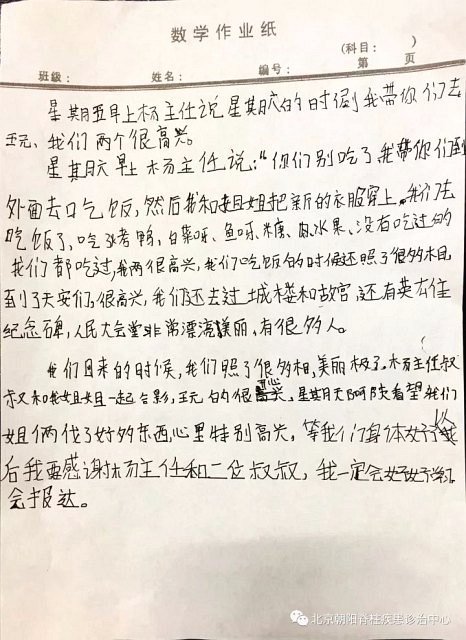 数学作业纸
(科目：　　)
班级：　　姓名：　　编号：　　第　　页
星期五早上杨主任说星期六的时候我带你们去
玩、我们两个很高兴。
星期六早上杨主任说："你们别吃了我带你们到
外面去吃饭，然后我和姐姐把新的衣服穿上，我们去
吃饭了，吃烤鸭，白菜呀、鱼呀、糖、肉、水果、没有吃过的
我们都吃过，我两很高兴，我们吃饭的时候还照了很多相
到了天安们，很高兴，我们还去过城楼和故宫，还有英右住
纪念碑，人民大会堂非常漂亮美丽，有很多人。
我们回来的时候，我们照了很多相，美丽极了。杨主任叔
叔又和我姐姐一起合影，玩的很高兴，星期天阿陕看望我们
姐俩代了好多东西，心里特别高兴，等我们身体好了以
后我要感谢杨主任和二位叔叔，我一定会好好学习
会报达。
北京朝阳脊柱疾患诊治中心